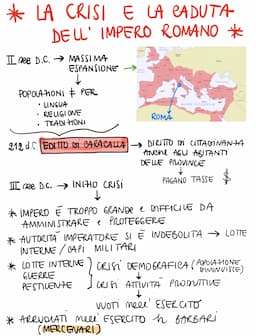 * LA CRISI E LA CADUTA *
DELL' IMPERO ROMANO
II sec D.C. → MASSIMA
ESPANSIONE →
ROMA
POPOLAZIONI ≠ PER
• LINGUA
• RELIGIONE
• TRADIZIONI
212 d.C EDITTO DI CARACALLA → DIRITTO DI CITTADINANZA
ANCHE AGLI ABITANTI
DELLE PROVINCE
PAGANO TASSE $
III sec D.C. → INIZIO CRISI
* IMPERO È TROPPO GRANDE e DIFFICILE DA
AMMINISTRARE e PROTEGGERE
* AUTORITÀ IMPERATORE SI È INDEBOLITA → LOTTE
INTERNE / CAPI MILITARI
* LOTTE INTERNE
GUERRE
PESTILENZE
CRISI DEMOGRAFICA (POPOLAZIONE DIMINUISCE)
CRISI ATTIVITÀ PRODUTTIVE
VUOTI NELL' ESERCITO
* ARRUOLATI NELL' ESERCITO DI BARBARI
(MERCENARI)